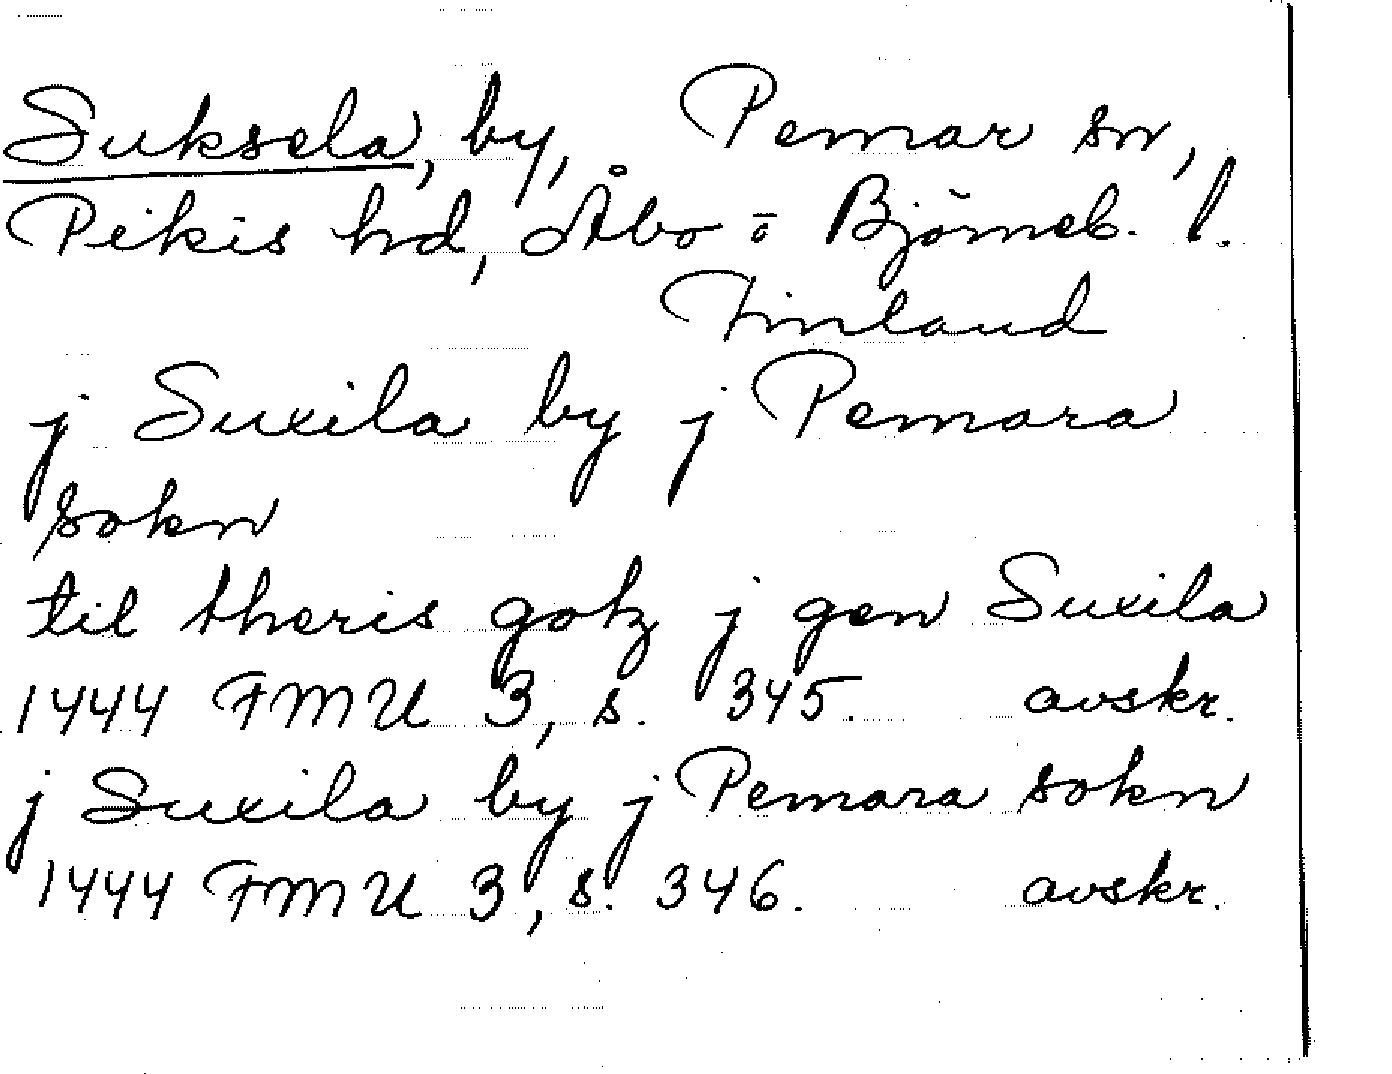 Suksela, by, Pemar sn,
Pikis hd, Åbo o Björneb. l.
Finland
j Suxila by j Pemara
sokn
til theris gotz j gen Suxila
1444 FMU 3, s. 345. avskr.
j Suxila by j Pemara sokn
1444 FMU 3, s. 346. avskr.